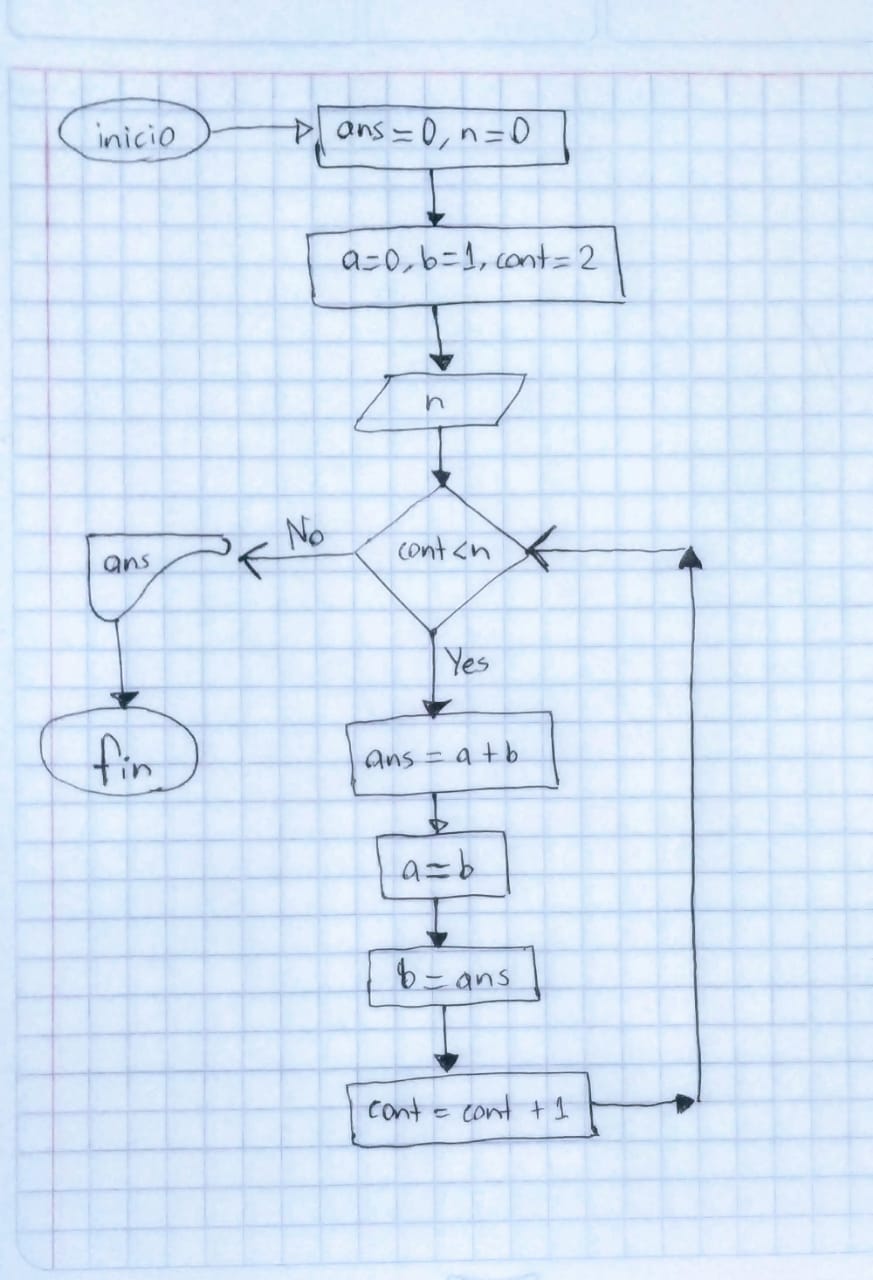 inicio
ans = 0, n = 0
a=0, b=1, cont=2
n
cont<n
No
ans
fin
Yes
ans = a + b
a = b
b = ans
cont = cont + 1